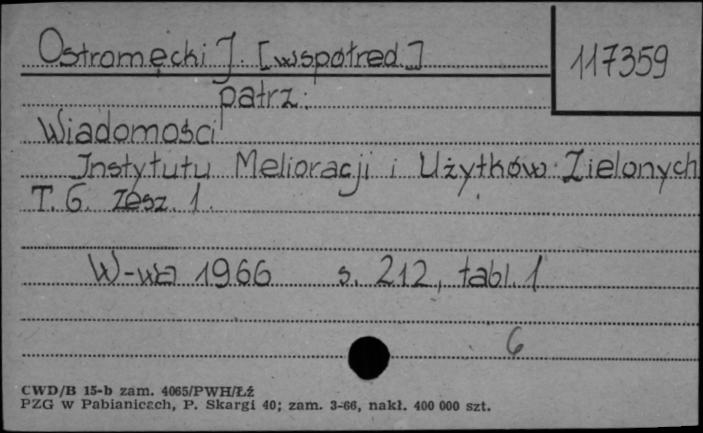 Ostromęcki J. [współred.]
117359
patrz:
Wiadomości
Instytutu Melioracji i Użytków Zielonych
T. 6. zesz. 1.
W-wa 1966 s. 212, tabl. 1
6
CWD/B 15-b zam. 4065/PWH/Łź
PZG w Pabianicach, P. Skargi 40; zam. 3-66, nakł. 400 000 szt.